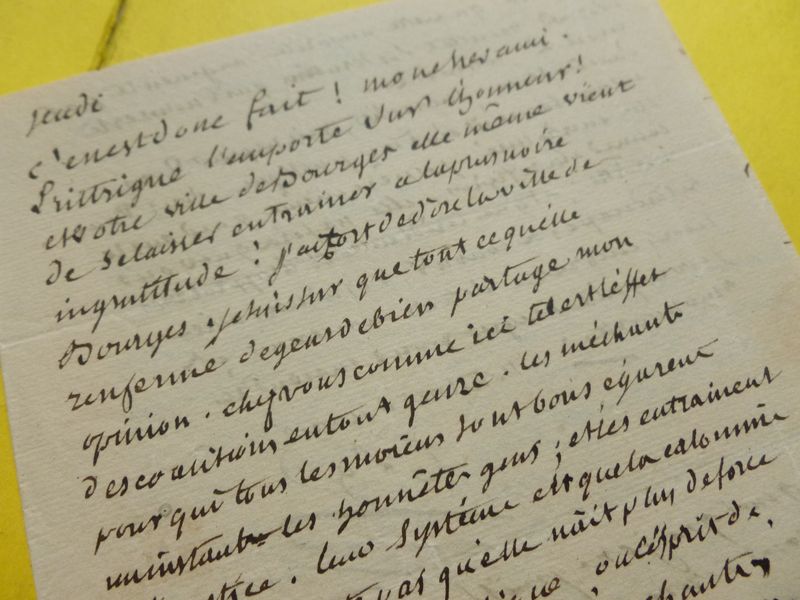 jeudi
c'en est donc fait ! mon cher ami.
L'intrigue l'emporte sur l'honneur !
et votre ville de Bourges elle même vient
de se laisser entrainer a la plus noire
ingratitude ! j'ai tort de dire la ville de
Bourges. je suis sur que tout ce qu'elle
renferme de gens de bien partage mon
opinion. chez vous comme ici tel est l'effet
des coalitions en tout genre. les méchants
pour qui tous les moiens sont bons égarent
un instant les honnêtes gens ; et les entrainent
leur système est que la calomnie
pas qu'elle n'ait plus de force
ou l'esprit de
méchants